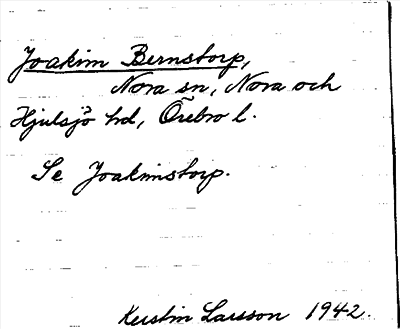 Joakim Bernstorp,
Nora sn, Nora och
Hjulsjö hd, Örebro l.
Se Joakimstorp.
Kerstin Larsson 1942.